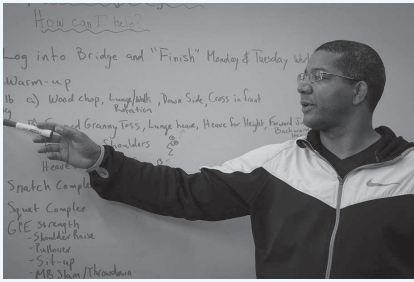 How can I help?
Log into Bridge and "Finish" Monday & Tuesday
Warm-up
a) Wood chop, Lunge/Walk, Down Side, Cross in fast
Rotation
Granny Toss, Lunge heave, Heave for Height, Forward
Shoulders
Heave
Snatch Complex
Squat Complex
GPE Strength
- Shoulder Raise
- Pullover
- Sit-up
- MB Slam/Throwdown